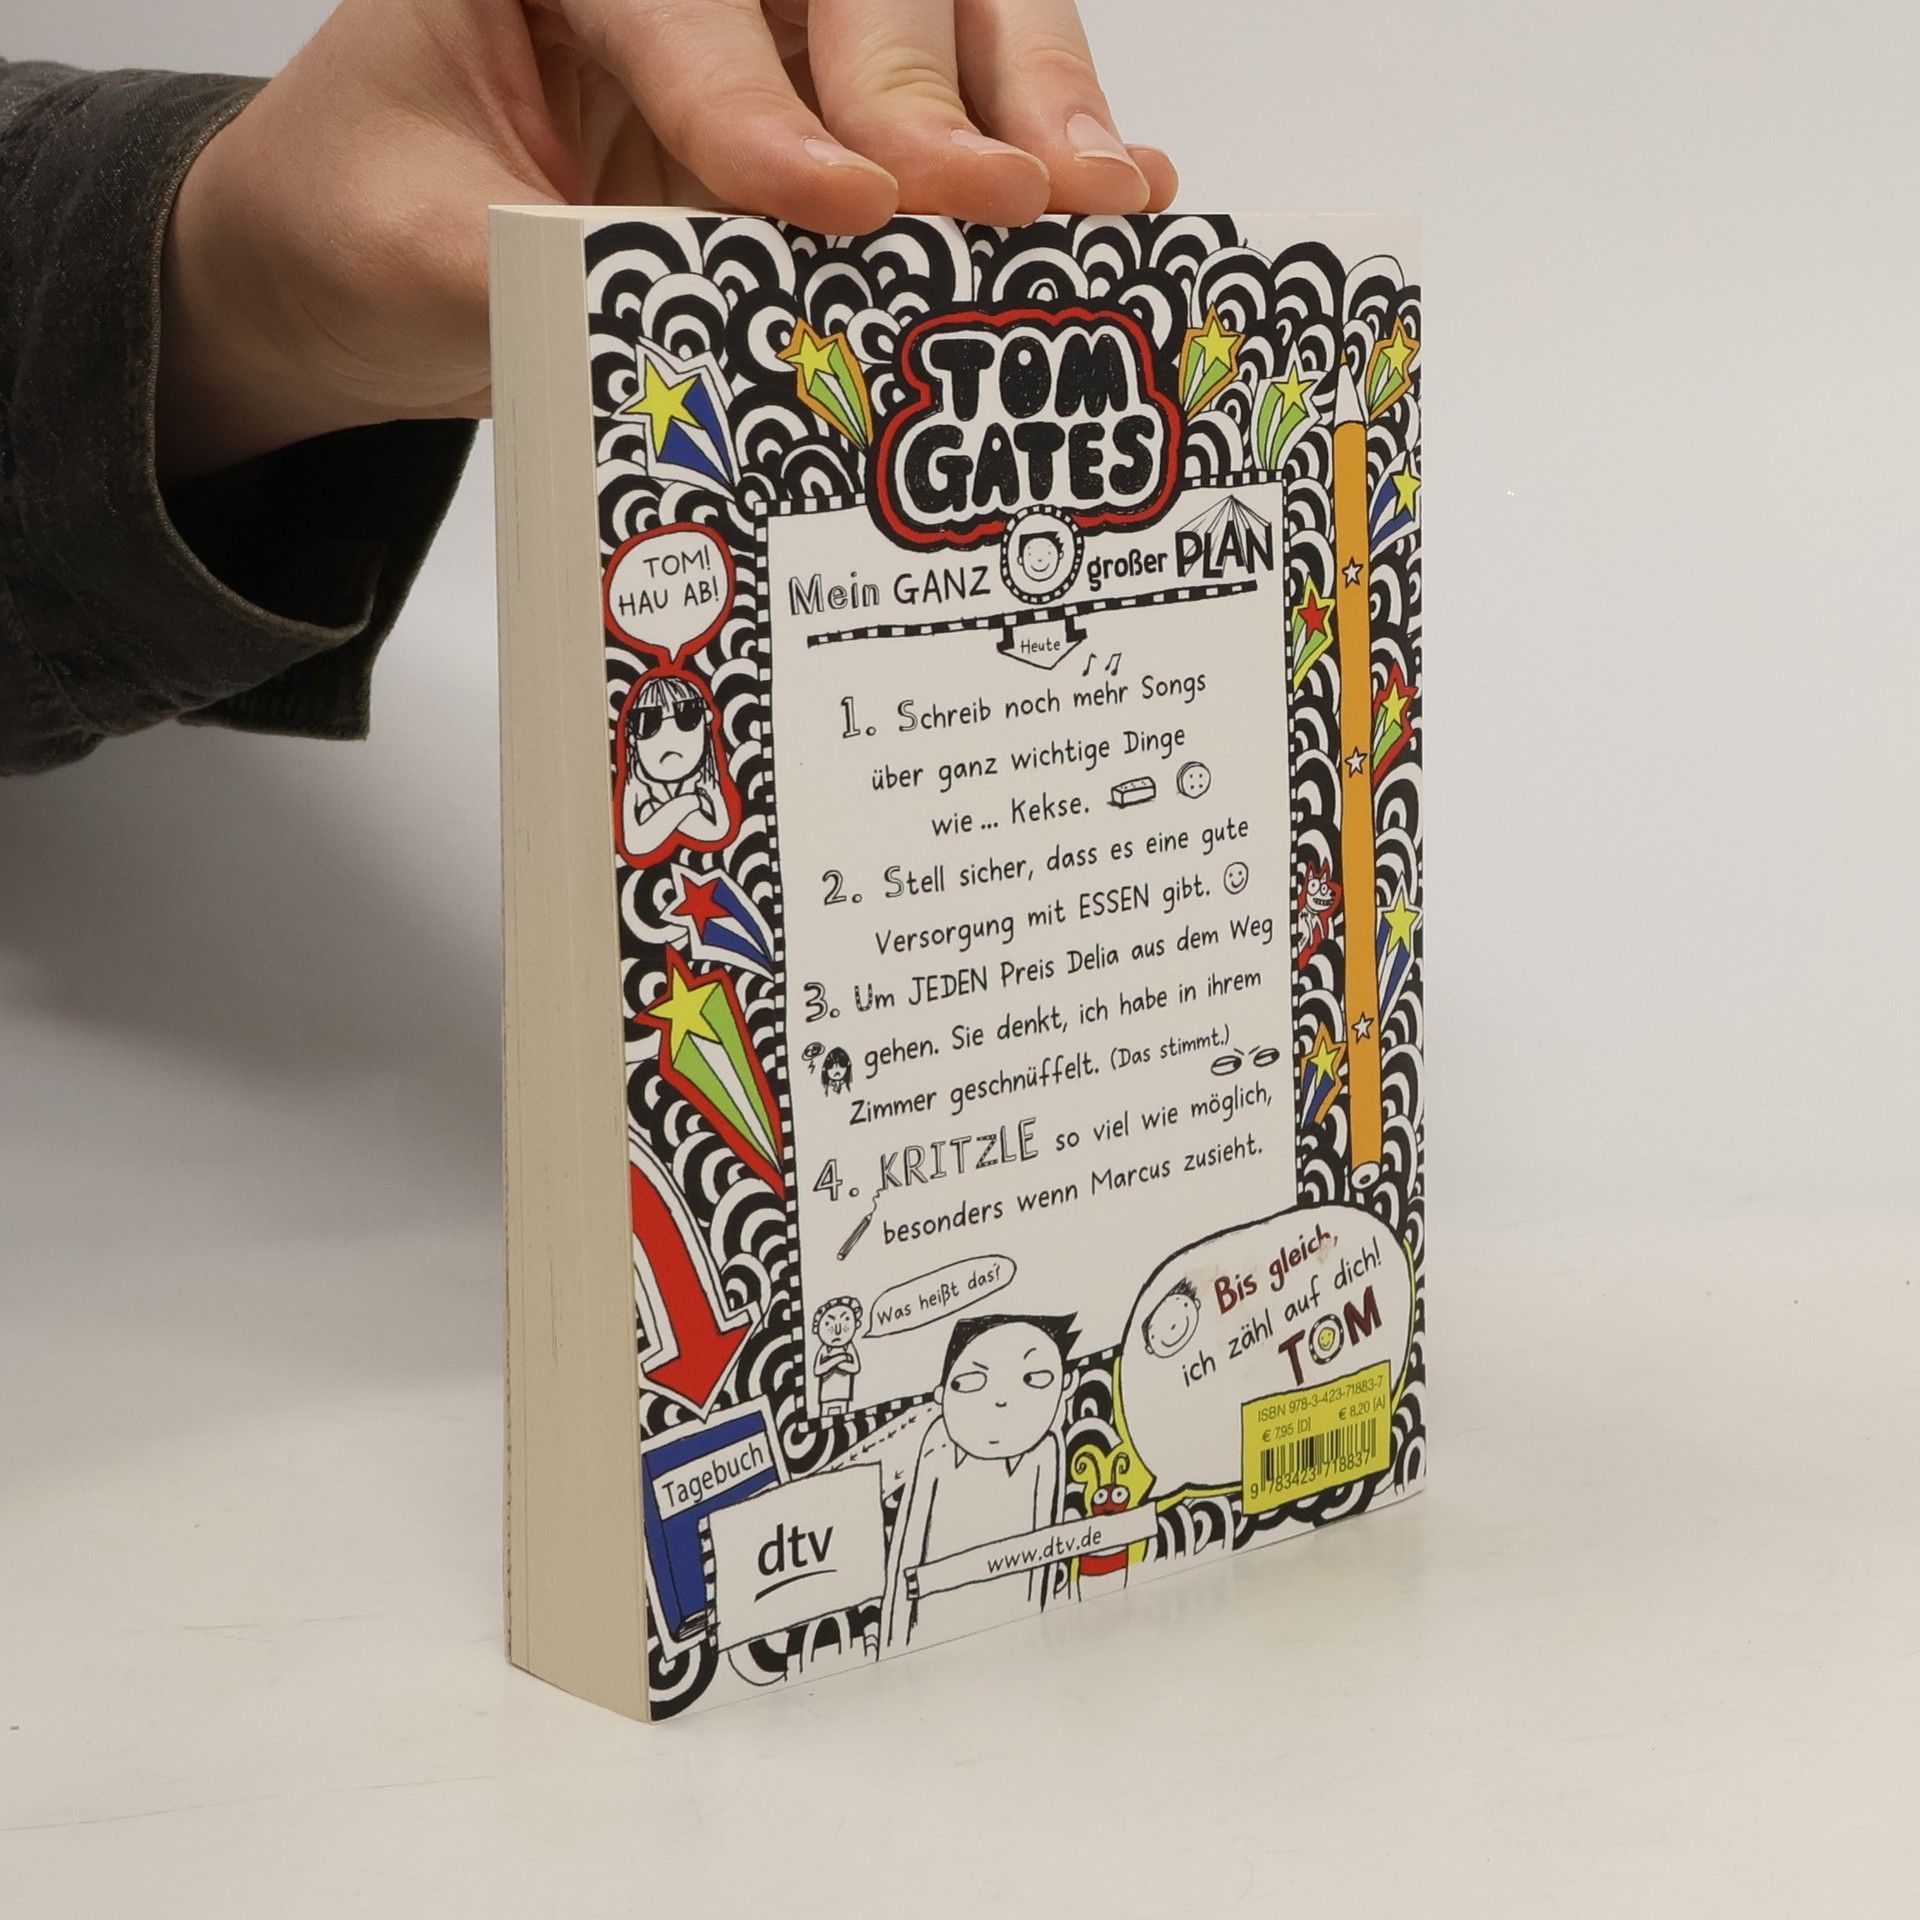 TOM
GATES
TOM!
HAU AB!
Mein GANZ großer PLAN
Heute
1. Schreib noch mehr Songs
über ganz wichtige Dinge
wie ... Kekse.
2. Stell sicher, dass es eine gute
Versorgung mit ESSEN gibt.
3. Um JEDEN Preis Delia aus dem Weg
gehen. Sie denkt, ich habe in ihrem
Zimmer geschnüffelt. (Das stimmt.)
4. KRITZLE so viel wie möglich,
besonders wenn Marcus zusieht.
Was heißt das?
Bis gleich,
ich zähl auf dich!
TOM
ISBN 978-3-423-71883-7
€ 7,95 [D] € 8,20 [A]
9 783423 718837
Tagebuch
dtv
www.dtv.de